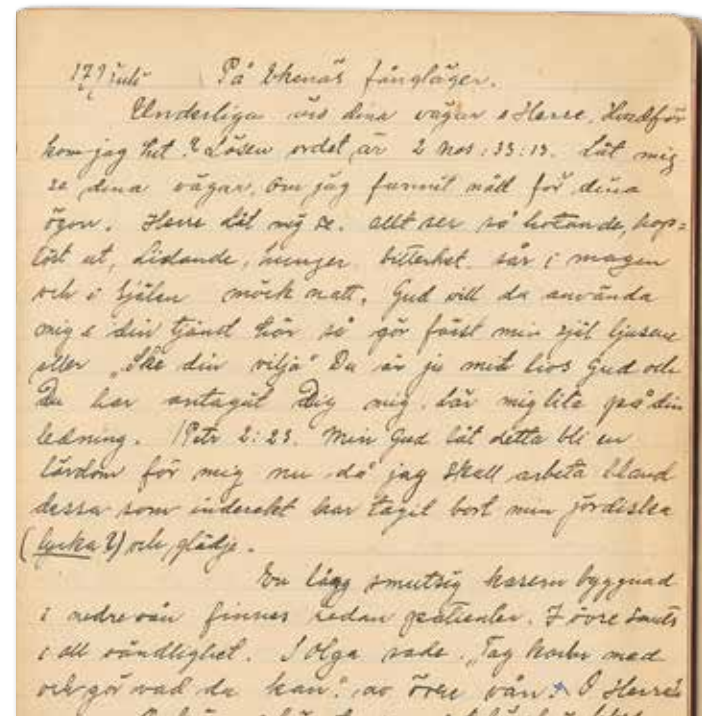 17 9 juli På Ekenäs fångläger.
Underliga äro dina vägar o Herre. Hvadför
kom jag hit? Lösen ordet är 2 Mos: 33:13. Låt mig
se dina vägar, om jag funnit nåd för dina
ögon. Herre låt mig se. allt ser så hotande, hop=
löst ut, lidande, hunger, bitterhet, sår i magen
och i Själen mörk natt. Gud vill du använda
mig i din tjänst här så gör först min själ ljusare
eller "Ske din vilja" Du är ju mitt livs Gud och
Du har antagit Dig mig. lär mig lita på din
ledning. 1 Petr 2:23. Min Gud låt detta bli en
lärdom för mig nu då jag skall arbeta bland
dessa som inderekt har tagit bort min jordiska
(lycka?) och glädje.
En låg smutsig kasern byggnad
i nedre vån finnes redan patienter. I övre smuts
i all oändlighet. S. Olga sade. "Tag korba med
och gör vad du kan." av övre vån. O Herre